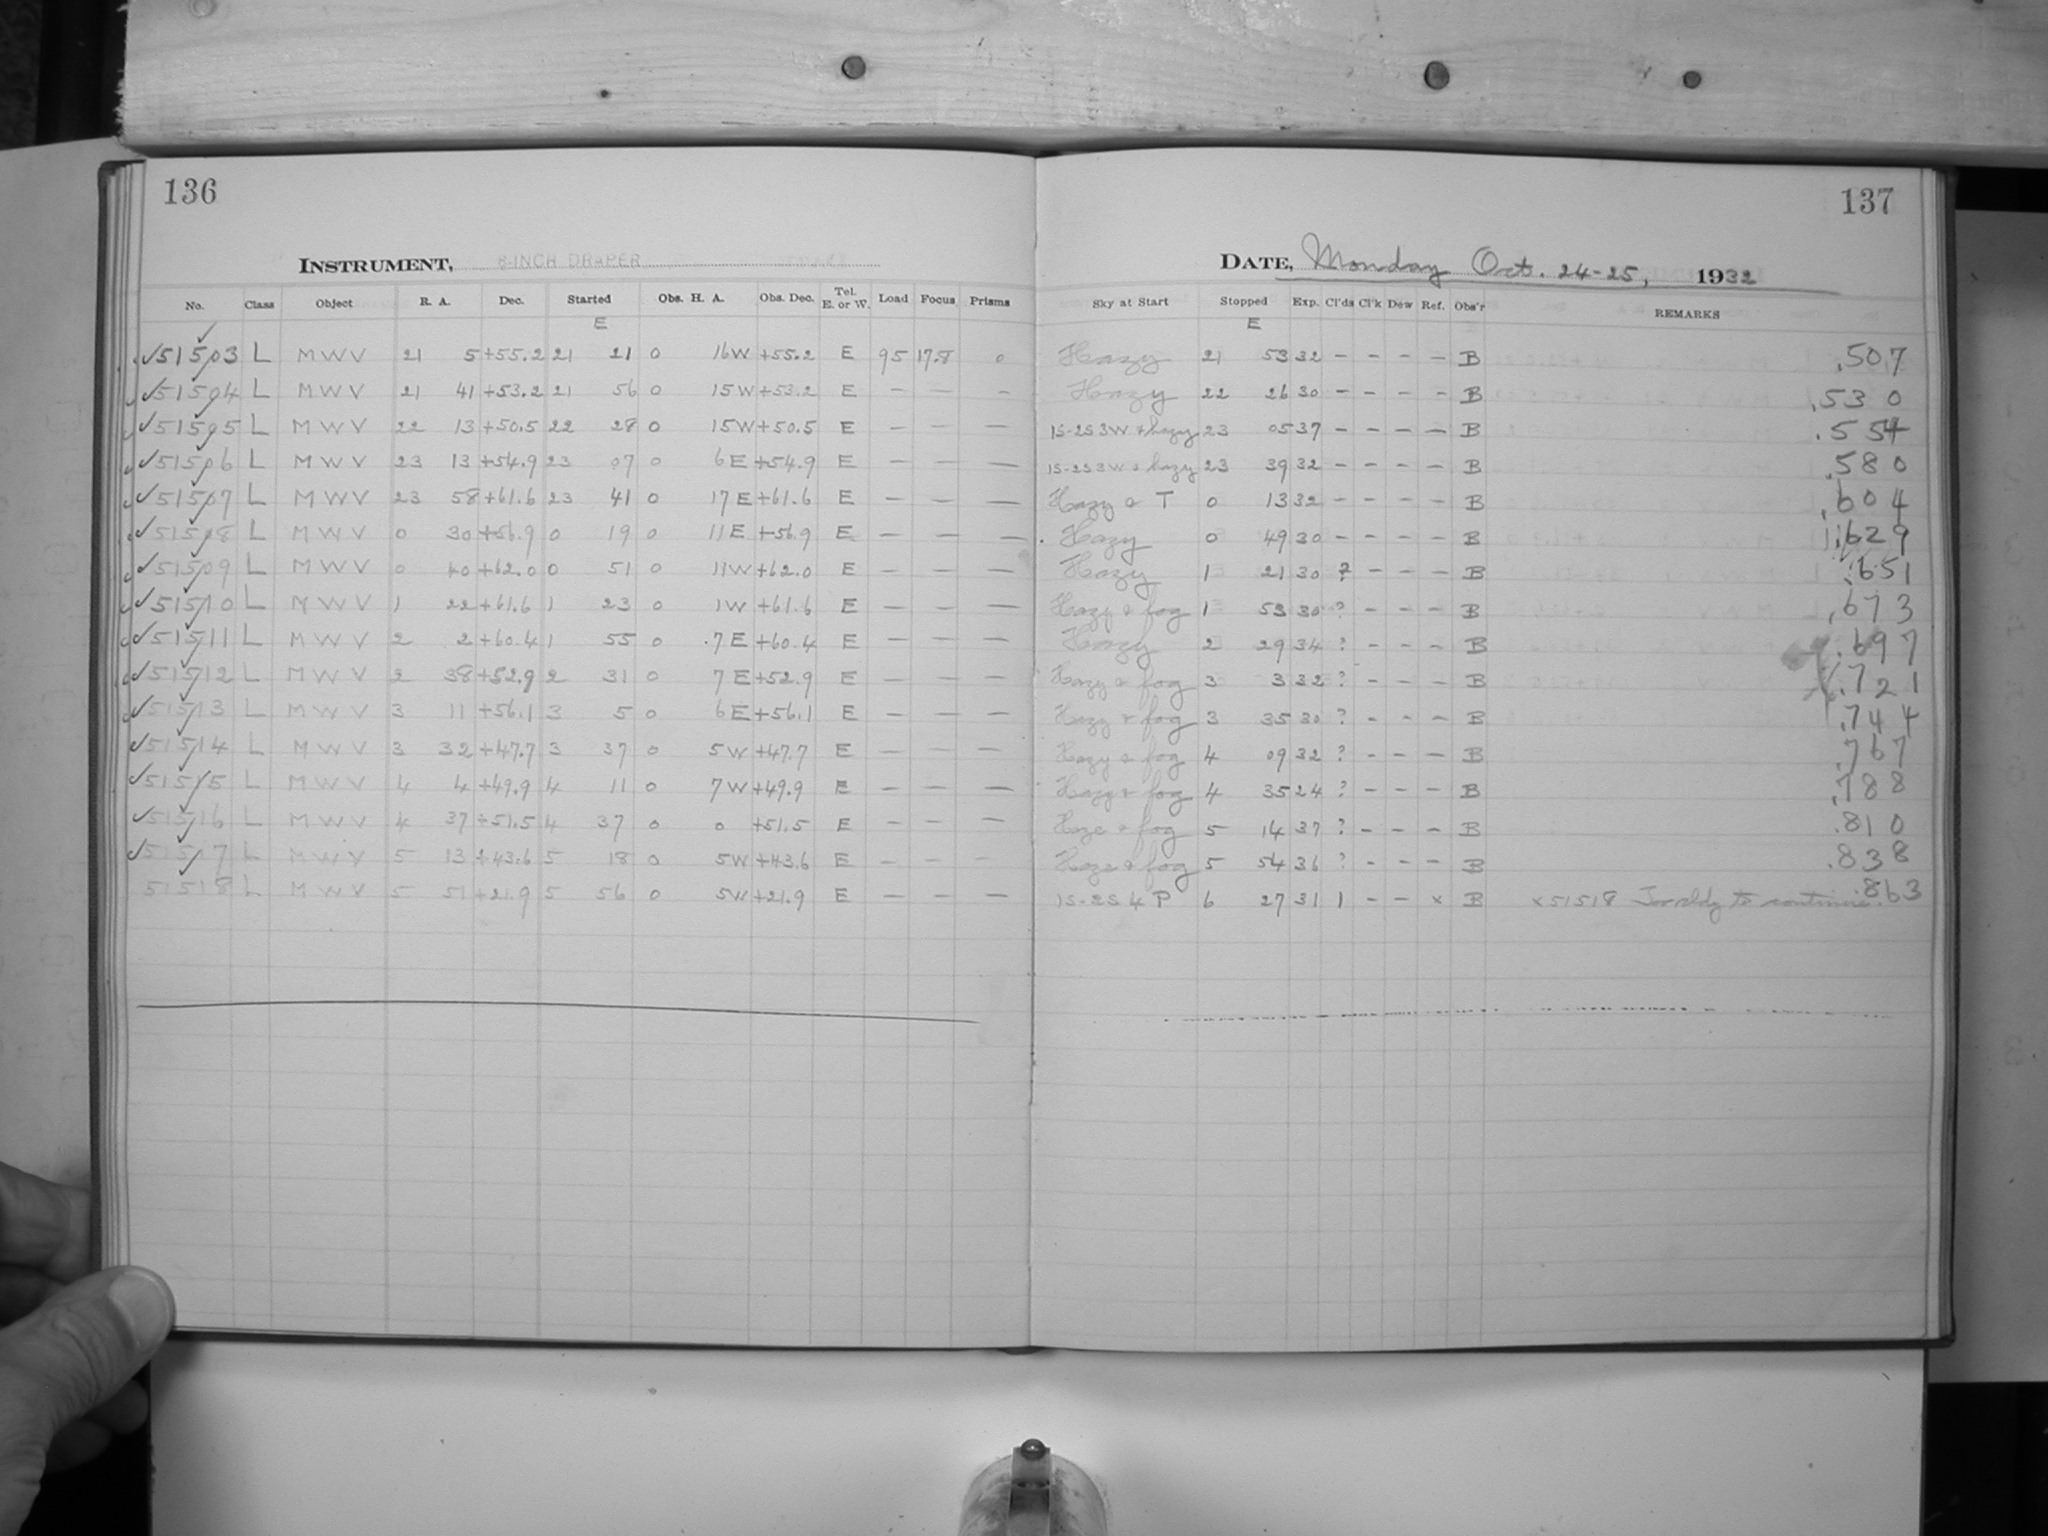 136
INSTRUMENT, 8-INCH DRAPER
No. Class Object R. A. Dec. Started Obs. H. A. Obs. Dec. Tel. E. or W. Load Focus Prisms
E
51503 L M W V 21 5 +55.2 21 21 0 16W +55.2 E 95 17.8 0
51504 L M W V 21 41 +53.2 21 56 0 15W +53.2 E — — —
51505 L M W V 22 13 +50.5 22 28 0 15W +50.5 E — — —
51506 L M W V 23 13 +54.9 23 07 0 6E +54.9 E — — —
51507 L M W V 23 58 +61.6 23 41 0 17E +61.6 E — — —
51508 L M W V 0 30 +56.9 0 19 0 11E +56.9 E — — —
51509 L M W V 0 40 +62.0 0 51 0 11W +62.0 E — — —
51510 L M W V 1 22 +61.6 1 23 0 1W +61.6 E — — —
51511 L M W V 2 2 +60.4 1 55 0 7E +60.4 E — — —
51512 L M W V 2 38 +52.9 2 31 0 7E +52.9 E — — —
51513 L M W V 3 11 +56.1 3 5 0 6E +56.1 E — — —
51514 L M W V 3 32 +47.7 3 37 0 5W +47.7 E — — —
51515 L M W V 4 4 +49.9 4 11 0 7W +49.9 E — — —
51516 L M W V 4 37 +51.5 4 37 0 0 +51.5 E — — —
51517 L M W V 5 13 +43.6 5 18 0 5W +43.6 E — — —
51518 L M W V 5 51 +21.9 5 56 0 5W +21.9 E — — —
137
DATE, Monday Oct. 24-25, 1932
Sky at Start Stopped Exp. Cl'ds Cl'k Dew Ref. Obs'r REMARKS
E
Hazy 21 53 32 – – – – B .507
Hazy 22 26 30 – – – – B .530
1S-2S3W & hazy 23 05 37 – – – – B .554
1S-2S3W & hazy 23 39 32 – – – – B .580
Hazy & T 0 13 32 – – – – B .604
Hazy 0 49 30 – – – – B .629
Hazy 1 21 30 ? – – – B .651
Hazy & fog 1 53 30 ? – – – B .673
Hazy 2 29 34 ? – – – B .697
Hazy & fog 3 3 32 ? – – – B .721
Hazy & fog 3 35 30 ? – – – B .744
Hazy & fog 4 09 32 ? – – – B .767
Hazy & fog 4 35 24 ? – – – B .788
Haze & fog 5 14 37 ? – – – B .810
Haze & fog 5 54 36 ? – – – B .838
1S-2S4P 6 27 31 1 – – × B ×51518 Too cldy to continue. .863